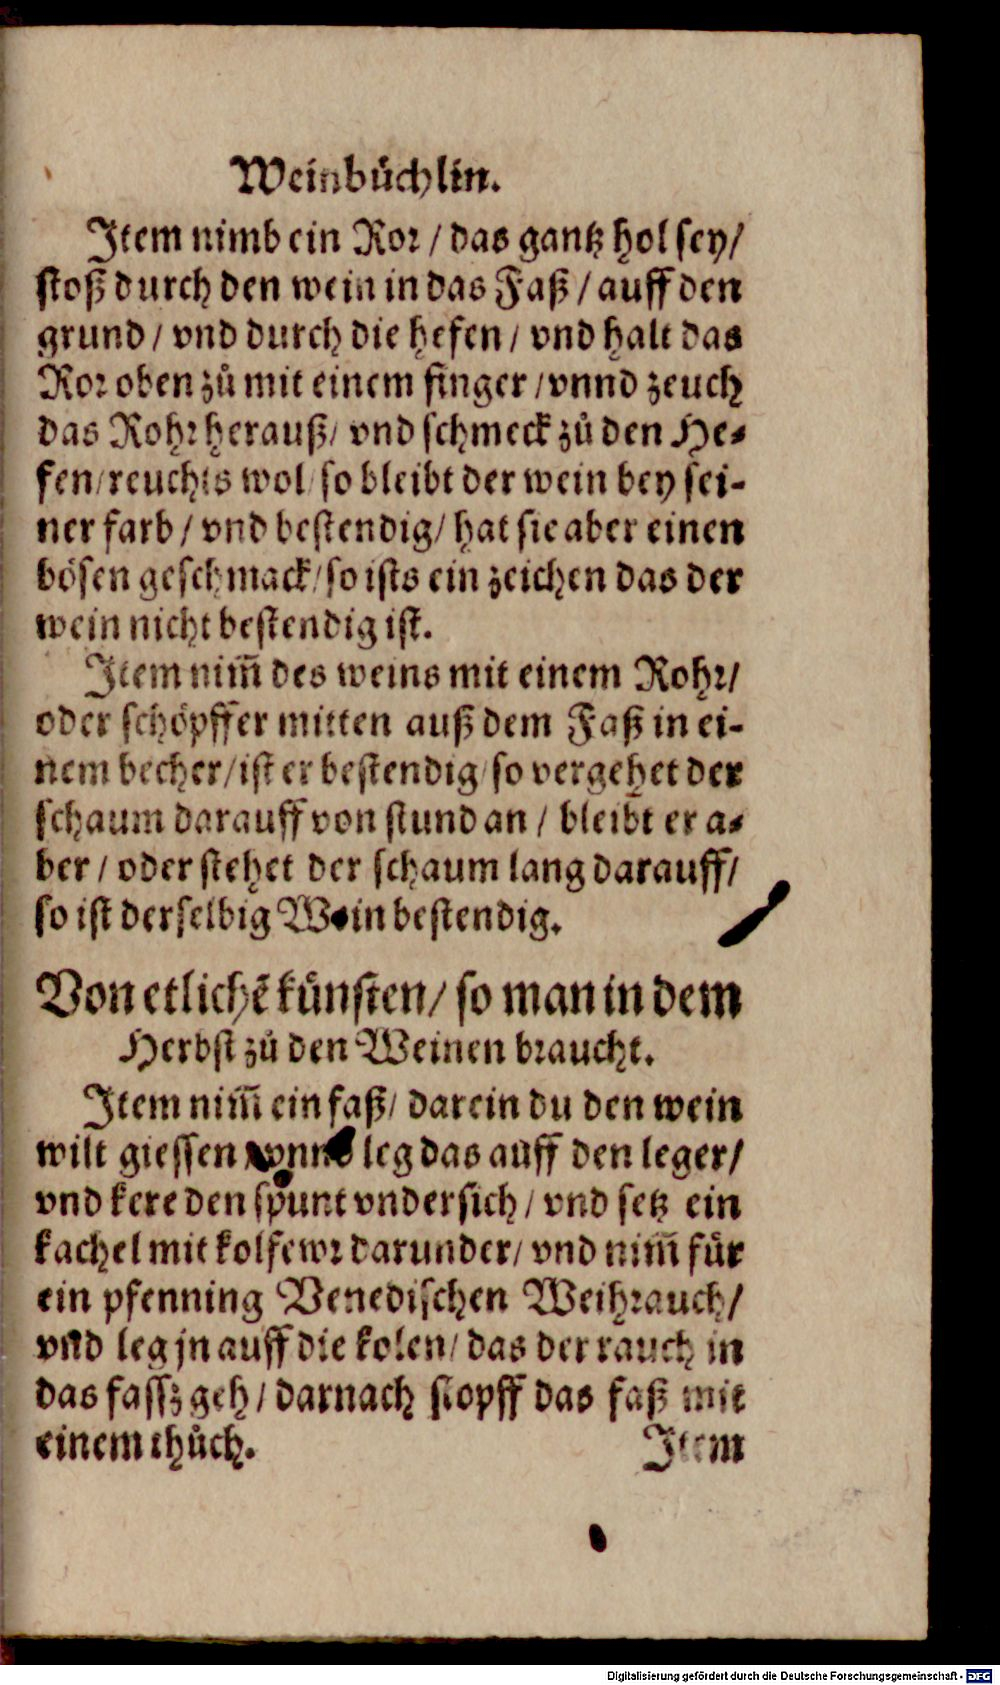 Weinbůchlin.
Item nimb ein Ror / das gantz hol sey/
stoß durch den wein in das Faß / auff den
grund / vnd durch die hefen / vnd halt das
Ror oben zů mit einem finger / vnnd zeuch
das Rohr herauß / vnd schmeck zů den He-
fen / reuchts wol / so bleibt der wein bey sei-
ner farb / vnd bestendig / hat sie aber einen
bösen geschmack / so ists ein zeichen das der
wein nicht bestendig ist.
Item nim̃ des weins mit einem Rohr/
oder schöpffer mitten auß dem Faß in ei-
nem becher / ist er bestendig / so vergehet der
schaum darauff von stund an / bleibt er a-
ber / oder stehet der schaum lang darauff/
so ist derselbig Wein bestendig.
Von etlichẽ kůnsten / so man in dem
Herbst zů den Weinen braucht.
Item nim̃ ein faß / darein du den wein
wilt giessen vnnd leg das auff den leger/
vnd kere den spunt vndersich / vnd setz ein
kachel mit kolfewr darunder / vnd nim̃ für
ein pfenning Venedischen Weihrauch/
vnd leg jn auff die kolen / das der rauch in
das fassz geh / darnach stopff das faß mit
einem thůch. Item
Digitalisierung gefördert durch die Deutsche Forschungsgemeinschaft - DFG